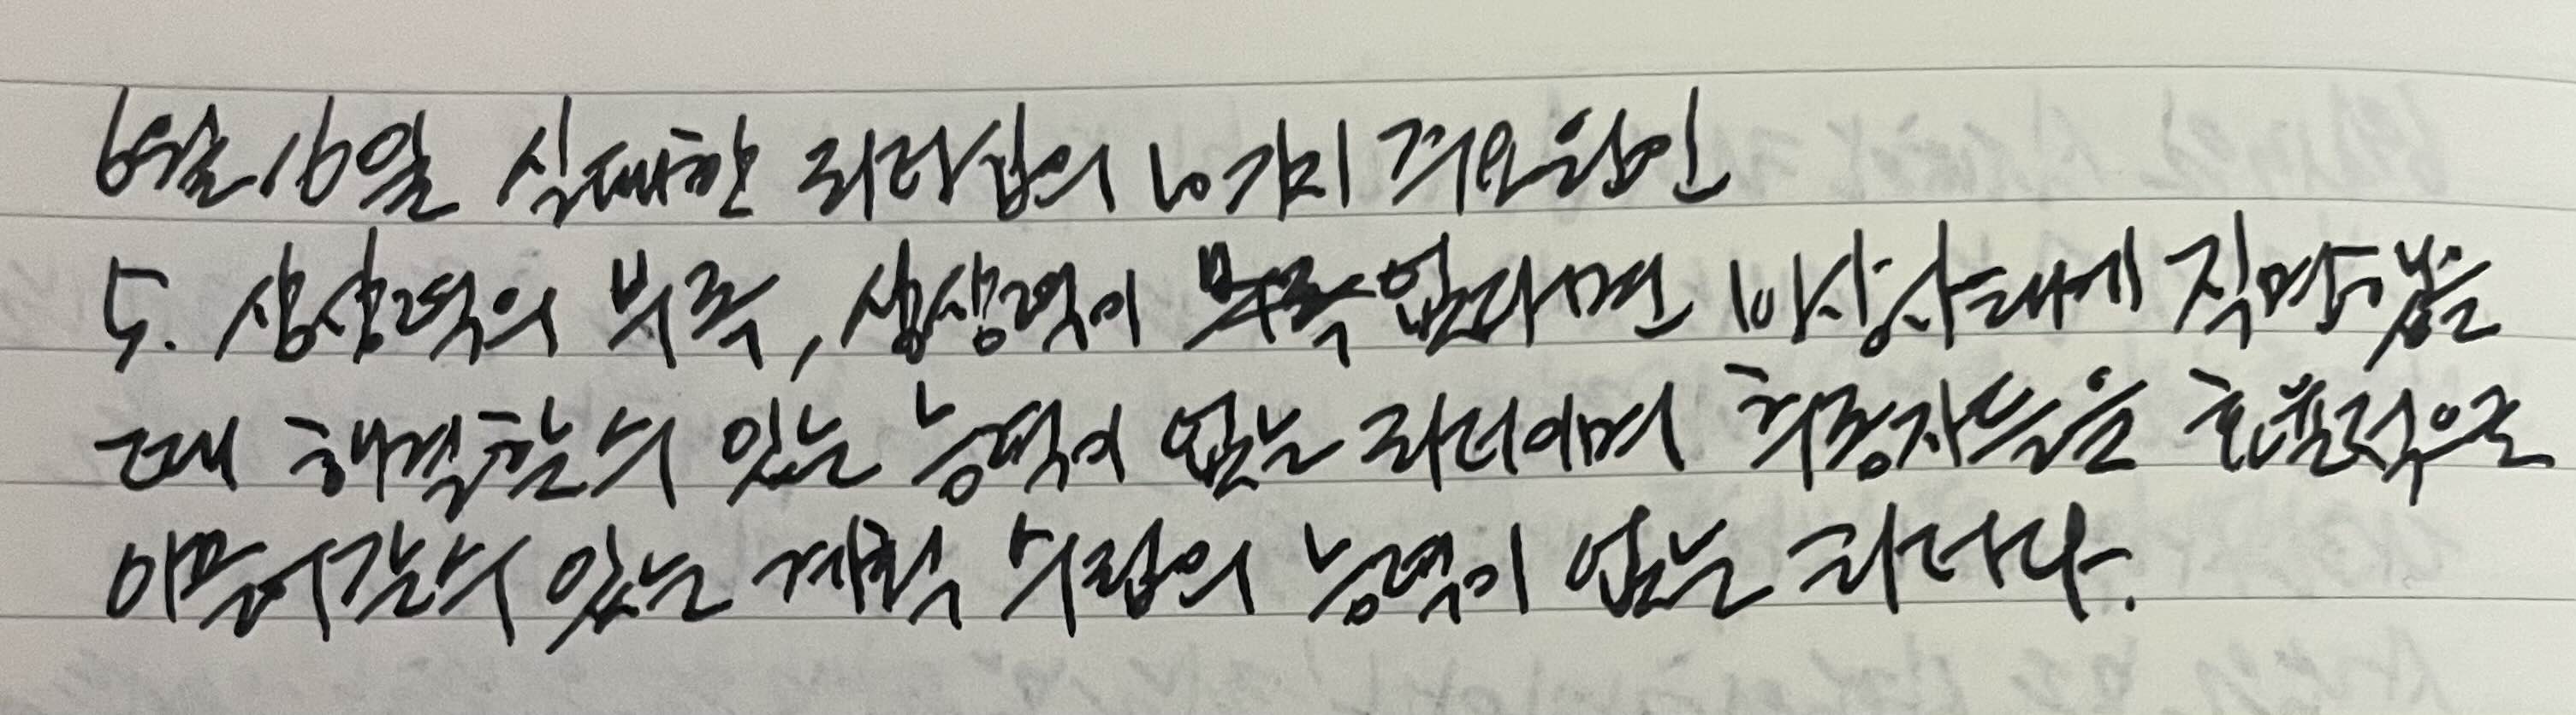 6월 16일 실패한 리더십의 10가지 주요원인
5. 상상력의 부족, 상상력이 부족 없다면 비상사태에 직면했을
때 해결할 수 있는 능력이 없는 리더이며 추종자들을 효율적으로
이끌어갈 수 있는 계획 수립의 능력이 없는 리더다.